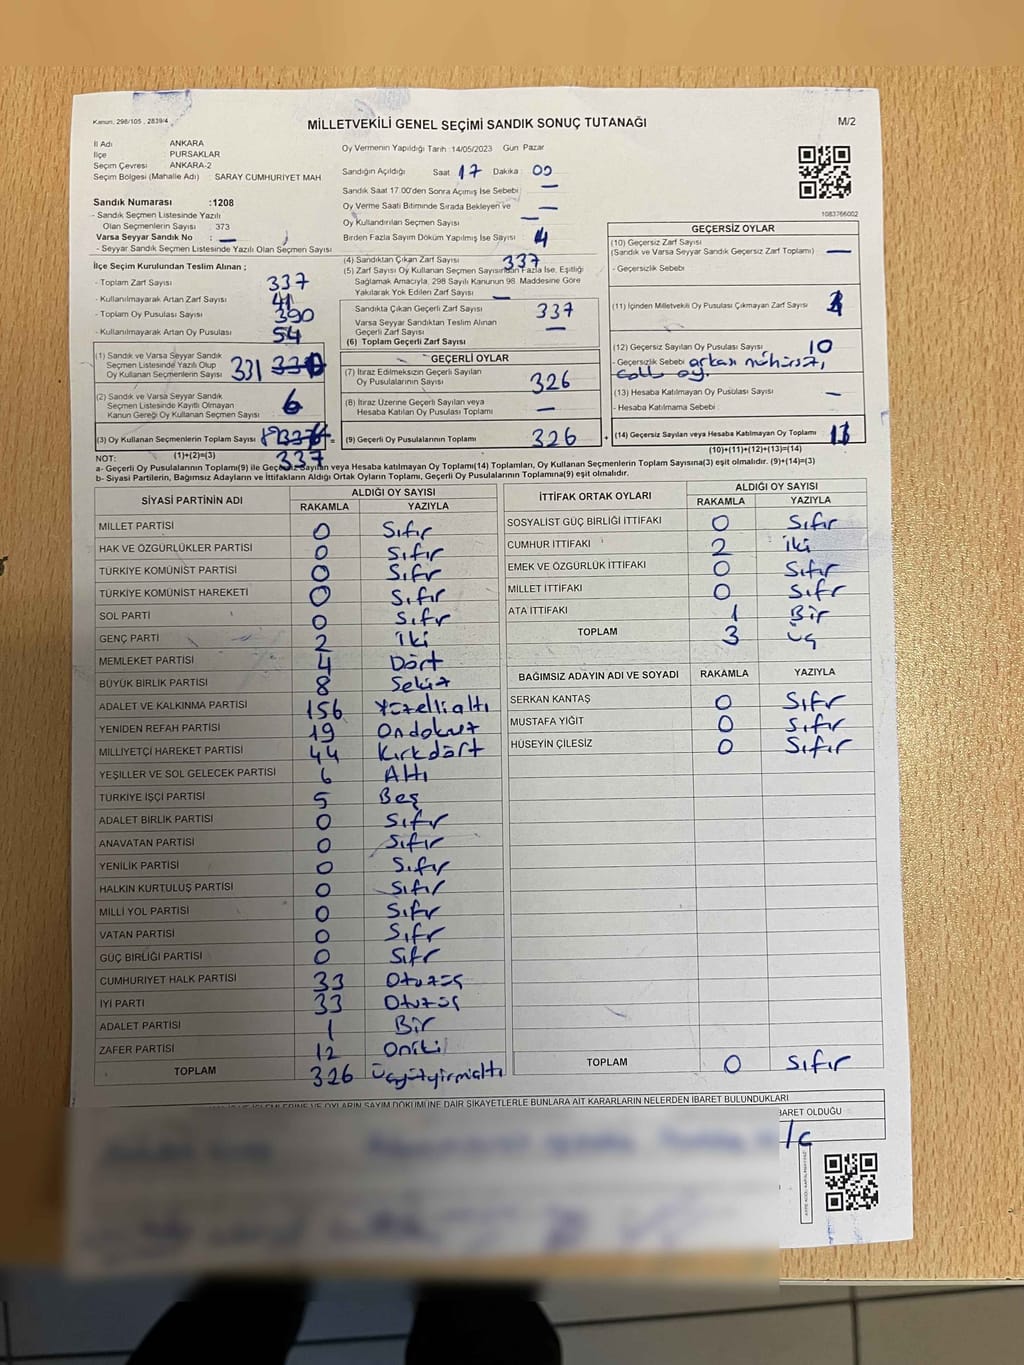 Kanun, 298/105 , 2839/4
MİLLETVEKİLİ GENEL SEÇİMİ SANDIK SONUÇ TUTANAĞI
M/2
İl Adı ANKARA
İlçe PURSAKLAR
Seçim Çevresi ANKARA-2
Seçim Bölgesi (Mahalle Adı) : SARAY CUMHURİYET MAH
Sandık Numarası :1208
- Sandık Seçmen Listesinde Yazılı
Olan Seçmenlerin Sayısı : 373
Varsa Seyyar Sandık No : —
- Seyyar Sandık Seçmen Listesinde Yazılı Olan Seçmen Sayısı
Oy Vermenin Yapıldığı Tarih 14/05/2023 Gün Pazar
Sandığın Açıldığı Saat 17 Dakika 00
Sandık Saat 17.00'den Sonra Açımış İse Sebebi —
Oy Verme Saati Bitiminde Sırada Bekleyen ve —
Oy Kullandırılan Seçmen Sayısı —
Birden Fazla Sayım Döküm Yapılmış İse Sayısı : 4
1083766002
İlçe Seçim Kurulundan Teslim Alınan ;
- Toplam Zarf Sayısı 337
- Kullanılmayarak Artan Zarf Sayısı 41
- Toplam Oy Pusulası Sayısı 390
- Kullanılmayarak Artan Oy Pusulası 54
(1) Sandık ve Varsa Seyyar Sandık
Seçmen Listesinde Yazılı Olup
Oy Kullanan Seçmenlerin Sayısı 331
(2) Sandık ve Varsa Seyyar Sandık
Seçmen Listesinde Kayıtlı Olmayan
Kanun Gereği Oy Kullanan Seçmen Sayısı 6
(3) Oy Kullanan Seçmenlerin Toplam Sayısı =
(1)+(2)=(3) 337
(4) Sandıktan Çıkan Zarf Sayısı 337
(5) Zarf Sayısı Oy Kullanan Seçmen Sayısından Fazla İse, Eşitliği
Sağlamak Amacıyla, 298 Sayılı Kanunun 98. Maddesine Göre
Yakılarak Yok Edilen Zarf Sayısı —
Sandıkta Çıkan Geçerli Zarf Sayısı 337
Varsa Seyyar Sandıktan Teslim Alınan
Geçerli Zarf Sayısı —
(6) Toplam Geçerli Zarf Sayısı
GEÇERLİ OYLAR
(7) İtiraz Edilmeksizin Geçerli Sayılan
Oy Pusulalarının Sayısı 326
(8) İtiraz Üzerine Geçerli Sayılan veya
Hesaba Katılan Oy Pusulası Toplamı —
(9) Geçerli Oy Pusulalarının Toplamı 326 +
GEÇERSİZ OYLAR
(10) Geçersiz Zarf Sayısı
(Sandık ve Varsa Seyyar Sandık Geçersiz Zarf Toplamı) —
- Geçersizlik Sebebi
(11) İçinden Milletvekili Oy Pusulası Çıkmayan Zarf Sayısı
(12) Geçersiz Sayılan Oy Pusulası Sayısı 10
- Geçersizlik Sebebi arkası mühürsüz,
(13) Hesaba Katılmayan Oy Pusulası Sayısı —
- Hesaba Katılmama Sebebi
(14) Geçersiz Sayılan veya Hesaba Katılmayan Oy Toplamı 11
(10)+(11)+(12)+(13)=(14)
NOT:
a- Geçerli Oy Pusulalarının Toplamı(9) ile Geçersiz Sayılan veya Hesaba katılmayan Oy Toplamı(14) Toplamları, Oy Kullanan Seçmenlerin Toplam Sayısına(3) eşit olmalıdır. (9)+(14)=(3)
b- Siyasi Partilerin, Bağımsız Adayların ve İttifakların Aldığı Ortak Oyların Toplamı, Geçerli Oy Pusulalarının Toplamına(9) eşit olmalıdır.
SİYASİ PARTİNİN ADI ALDIĞI OY SAYISI
RAKAMLA YAZIYLA
MİLLET PARTİSİ 0 Sıfır
HAK VE ÖZGÜRLÜKLER PARTİSİ 0 Sıfır
TÜRKİYE KOMÜNİST PARTİSİ 0 Sıfır
TÜRKİYE KOMÜNİST HAREKETİ 0 Sıfır
SOL PARTİ 0 Sıfır
GENÇ PARTİ 2 İki
MEMLEKET PARTİSİ 4 Dört
BÜYÜK BİRLİK PARTİSİ 8 Sekiz
ADALET VE KALKINMA PARTİSİ 156 Yüzellialtı
YENİDEN REFAH PARTİSİ 19 Ondokuz
MİLLİYETÇİ HAREKET PARTİSİ 44 Kırkdört
YEŞİLLER VE SOL GELECEK PARTİSİ 6 Altı
TÜRKİYE İŞÇİ PARTİSİ 5 Beş
ADALET BİRLİK PARTİSİ 0 Sıfır
ANAVATAN PARTİSİ 0 Sıfır
YENİLİK PARTİSİ 0 Sıfır
HALKIN KURTULUŞ PARTİSİ 0 Sıfır
MİLLİ YOL PARTİSİ 0 Sıfır
VATAN PARTİSİ 0 Sıfır
GÜÇ BİRLİĞİ PARTİSİ 0 Sıfır
CUMHURİYET HALK PARTİSİ 33 Otuzüç
İYİ PARTİ 33 Otuzüç
ADALET PARTİSİ 1 Bir
ZAFER PARTİSİ 12 Oniki
TOPLAM 326 Üçyüzyirmialtı
İTTİFAK ORTAK OYLARI ALDIĞI OY SAYISI
RAKAMLA YAZIYLA
SOSYALİST GÜÇ BİRLİĞİ İTTİFAKI 0 Sıfır
CUMHUR İTTİFAKI 2 İki
EMEK VE ÖZGÜRLÜK İTTİFAKI 0 Sıfır
MİLLET İTTİFAKI 0 Sıfır
ATA İTTİFAKI 1 Bir
TOPLAM 3 üç
BAĞIMSIZ ADAYIN ADI VE SOYADI RAKAMLA YAZIYLA
SERKAN KANTAŞ 0 Sıfır
MUSTAFA YİĞİT 0 Sıfır
HÜSEYİN ÇİLESİZ 0 Sıfır
TOPLAM 0 Sıfır
OYLARIN SAYIM DÖKÜMÜNE DAİR ŞİKAYETLERLE BUNLARA AİT KARARLARIN NELERDEN İBARET BULUNDUKLARI
İBARET OLDUĞU